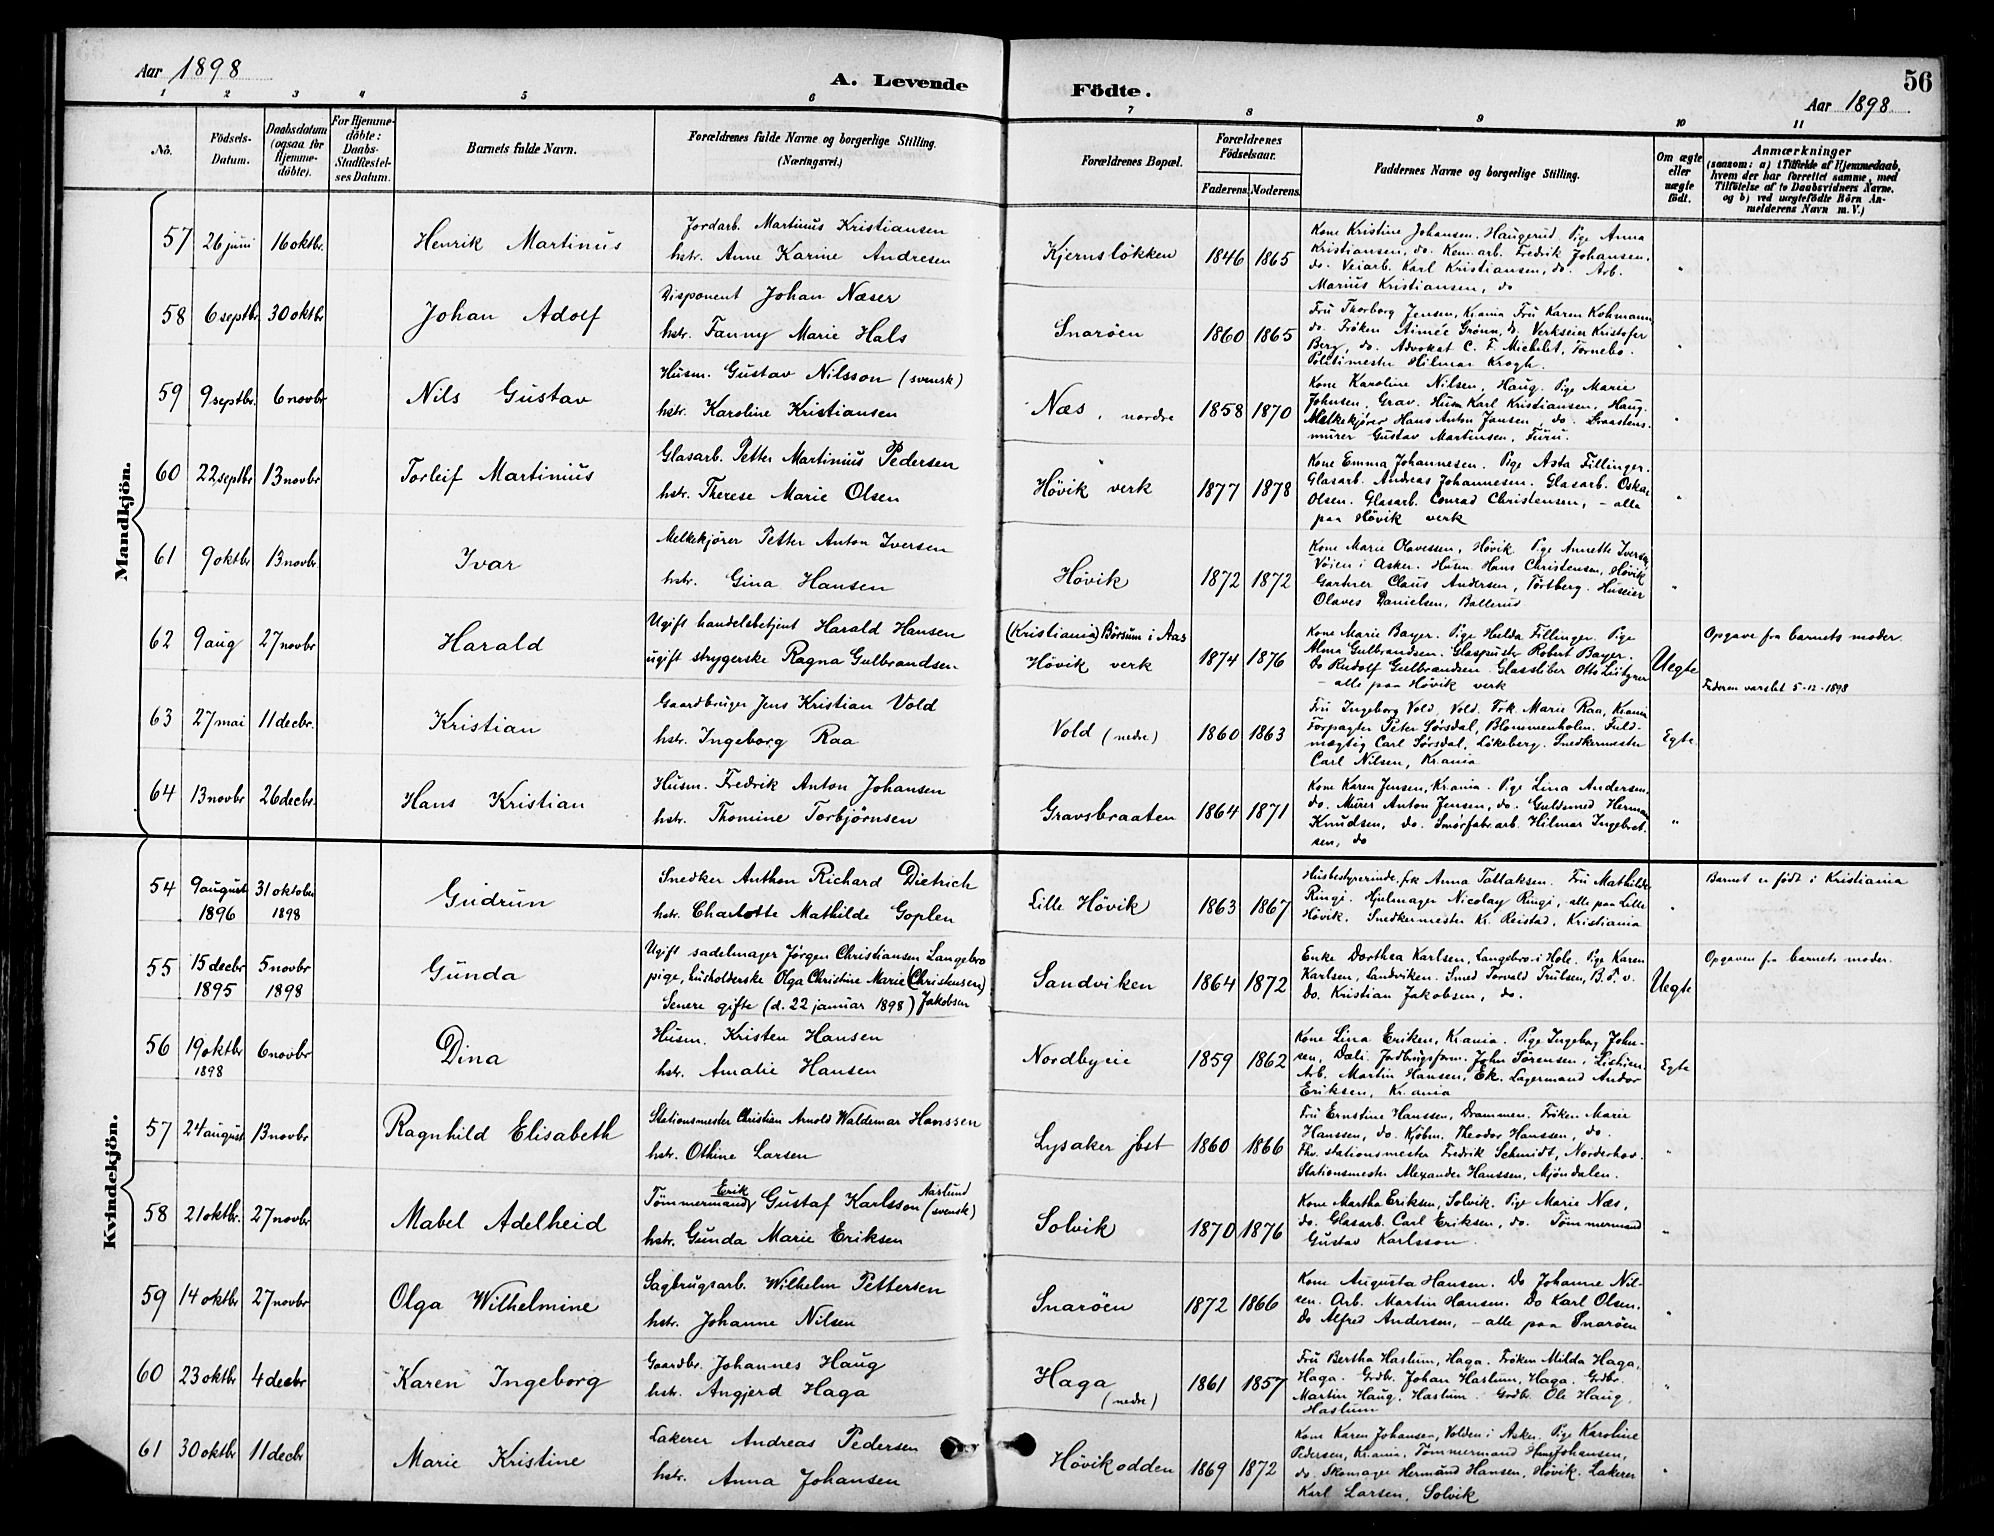 Aar 1898
A. Levende
Födte.
56
Aar 1898
1 2 3 4 5 6 7 8 9 10 11
No.
Födsels-
Datum.
Daabsdatum
(ogsaa for
Hjemme-
döbte).
For Hjemme-
döbte:
Daabs-
Stadfæstel-
ses Datum.
Barnets fulde Navn.
Forældrenes fulde Navne og borgerlige Stilling.
(Næringsvei.)
Forældrenes Bopæl.
Forældrenes
Födselsaar.
Faderens.
Moderens.
Faddernes Navne og borgerlige Stilling.
Om ægte
eller
uægte
födt.
Anmærkninger
(saasom: a) i Tilfælde af Hjemmedaab,
hvem der har forrettet samme, med
Tilföielse af to Daabsvidners Navne.
og b) ved uægtefödte Börn An-
melderens Navn m. V.)
Mandkjön.
57 26 juni 16 oktbr. Henrik Martinus
Jordarb. Martinus Kristiansen
hstr. Anne Karine Andresen
Kjernsløkken 1846 1865
Kone Kristine Johansen. Haugerud. Pige Anna
Kristiansen, do. Kem. arb. Fredrik Johansen,
do. Veiarb. Karl Kristiansen, do. Arb.
Marius Kristiansen, do
"
58 6 septbr. 30 oktbr Johan Adolf
Disponent Johan Næser
hstr. Fanny Marie Hals
Snarøen 1860 1865
Fru Thorborg Jensen, Krania Fru Karen Kohmann
do. Frøken Aimée Grønn, do. Verkseier Kristofer
Berg, do. Advokat C. F. Michelet, Tornebo.
Politimester Hilmar Krogh.
"
59 9 septbr. 6 novbr Nils Gustav
Husm. Gustav Nilsson (svensk)
hstr. Karoline Kristiansen
Næs, nordre 1858 1870
Kone Karoline Nilsen, Haug. Pige Marie
Johnsen, Grav. Husm Karl Kristiansen, Haug.
Melkekjører Hans Anton Jansen, do. Graastens-
murer Gustav Martinsen, Furu.
"
60 22 septbr 13 novbr Torleif Martinius
Glasarb. Petter Martinius Pedersen
hstr. Therese Marie Olsen
Høvik verk 1877 1878
Kone Emma Johannesen. Pige Asta Fillinger.
Glasarb. Andreas Johannesen. Glasarb. Oskar
Olsen. Glasarb. Conrad Christensen, - alle
paa Høvik verk
"
61 9 oktbr 13 novbr Ivar
Melkekjører Petter Anton Iversen
hstr. Gina Hansen
Høvik 1872 1872
Kone Marie Olavessen, Høvik. Pige Annette Iversen
Vøien i Asker. Husm. Hans Christensen, Høvik
Gartner Claus Andersen, Tørtberg. Huseier
Olaves Danielsen, Ballerud
"
62 9 aug 27 novbr Harald
Ugift handelsbetjent Harald Hansen
ugift strygerske Ragna Gulbrandsen
(Kristiania) Børsum i Aas
Høvik verk 1874 1876
Kone Marie Bayer. Pige Hulda Fillinger. Pige
Alma Gulbrandsen. Glaspuster Robert Bayer.
Do Rudolf Gulbrandsen. Glassliber Otto
- alle paa Høvik verk
Uegte
Opgave fra barnets moder.
Faderen varslet 5-12-1898
63 27 mai 11 decbr. Kristian
Gaardbruger Jens Kristian Vold
hstr. Ingeborg Raa
Vold (nedre) 1860 1863
Fru Ingeborg Vold, Vold. Frk. Marie Raa, Krania
Forpagter Peter Sørsdal, Blommenholm. Fuld-
mægtig Carl Sørsdal, Løkeberg. Snedkermester
Carl Nilsen, Krania
Egte
64 13 novbr 26 decbr. Hans Kristian
Husm. Fredrik Anton Johansen
hstr. Thomine Torbjørnsen
Gravsbraaten 1864 1871
Kone Karen Jensen, Krania. Pige Lina Andersen,
do. Murer Anton Jensen, do. Guldsmed Herman
Knudsen, do. Smørfabr. arb. Hilmar Ingebret-
sen, do
"
Kvindekjön.
54 9 august 31 oktober Gudrun
1896 1898
Snedker Anthon Richard Dietrich
hstr. Charlotte Mathilde Goplen
Lille Høvik 1863 1867
Husbestyrerinde, frk Anna Tallaksen. Fru Mathilde
Ringi. Hjulmager Nicolay Ringi, alle paa Lille
Høvik. Snedkermester Kr. Reistad, Kristiania
"
Barnet er født i Kristiania
55 15 decbr 5 novbr Gunda
1895 1898
Ugift sadelmager Jørgen Christiansen Langebro
pige, husholderske Olga Christine Marie (Christensen)
Senere gifte (d. 22 januar 1898) Jakobsen
Sandviken 1864 1872
Enke Dorthea Karlsen, Langebro i Hole. Pige Karen
Karlsen, Sandviken. Smed Torvald Trulsen, B. T. v.
Do. Kristian Jakobsen, do.
Uegte
Opgaven fra barnets moder.
56 19 oktbr 6 novbr Dina
1898
Husm. Kristen Hansen
hstr. Amalie Hansen
Nordbyeie 1859 1862
Kone Lina Eriksen, Krania. Pige Ingeborg John-
sen, Dæli. Jordbrugsform. John Sørensen,
Arb. Martin Hansen, Ek. Lagermand Andor
Eriksen, Krania
Egte
57 24 august 13 novbr Ragnhild Elisabeth
Stationsmester Christian Arnold Waldemar Hanssen
hstr. Othine Larsen
Lysaker jbst 1860 1866
Fru Ernstine Hanssen, Drammen. Frøken Marie
Hanssen, do. Kjøbm. Theodor Hanssen, do.
Fhv. stationsmester Fredrik Schmidt, Norderhov.
Stationsmester Alexander Hanssen, Mjøndalen.
"
58 21 oktbr. 27 novbr Mabel Adelheid
Tømmermand Erik Gustaf Karlsson Aaslund (svensk)
hstr. Gunda Marie Eriksen
Solvik 1870 1876
Kone Martha Eriksen, Solvik. Pige Marie Næs,
do. Glasarb. Carl Eriksen, do. Tømmermand
Gustav Karlsson.
"
59 14 oktbr 27 novbr Olga Wilhelmine
Sagbrugsarb. Wilhelm Pettersen
hstr. Johanne Nilsen
Snarøen 1872 1866
Kone Augusta Hansen. Do Johanne Nil-
sen. Arb. Martin Hansen. Do Karl Olsen.
Do Alfred Andersen, - alle paa Snarøen
"
60 23 oktbr 4 decbr Karen Ingeborg
Gaardbr. Johannes Haug
hstr. Angjerd Haga
Haga (nedre) 1861 1857
Fru Bertha Haslum, Haga. Frøken Milda Haga,
Haga. Grdbr. Johan Haslum, Haga. Grdbr.
Martin Haug, Haslum. Grdbr. Ole Haug,
Haslum
"
61 30 oktbr 11 decbr Marie Kristine
Lakerer Andreas Pedersen
hstr. Anna Johansen
Høvikodden 1869 1872
Kone Karen Johansen, Volden i Asker. Pige Karoline
Pedersen, Krania. Tømmermand Hans Johansen,
do. Skomager Hermand Hansen, Høvik. Lakerer
Karl Larsen, Solvik
"